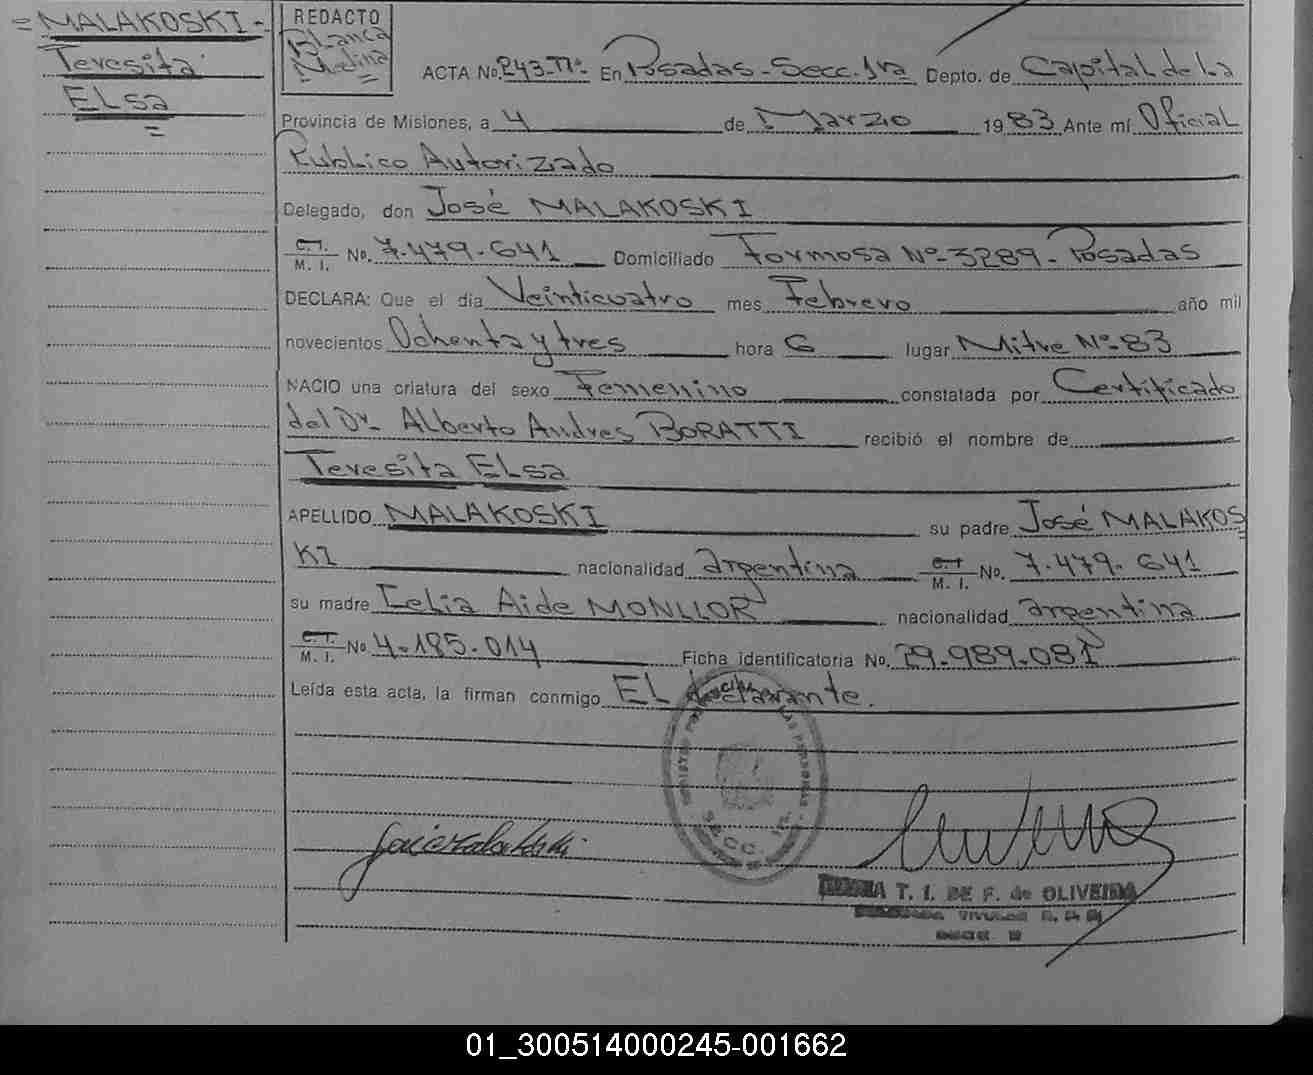 = MALAKOSKI -
Teresita
ELsa
=
REDACTO
Blanca
Medina
=
ACTA No. 243-Tº- En Posadas-Secc. 1ra Depto. de Capital de La
Provincia de Misiones, a 4 de Marzo 1983 Ante mí Oficial
Publico Autorizado
Delegado, don José MALAKOSKI
C.I. M. I. No. 7.479.641 Domiciliado Formosa Nº-3289- Posadas
DECLARA: Que el día Veinticuatro mes Febrero año mil
novecientos Ochenta y tres hora 6 lugar Mitre Nº-83
NACIO una criatura del sexo Femenino constatada por Certificado
del Dr. Alberto Andres BORATTI recibió el nombre de
Teresita ELsa
APELLIDO MALAKOSKI su padre José MALAKOS
KI nacionalidad argentina C.I. M. I. No. 7.479.641
su madre Celia Aide MONLLOR nacionalidad argentina
C.I. M. I. No 4.185.014 Ficha identificatoria No. 29.989.081
Leída esta acta, la firman conmigo EL declarante.
SECC.
José Malakoski
T. I. DE F. de OLIVEIRA
01_300514000245-001662